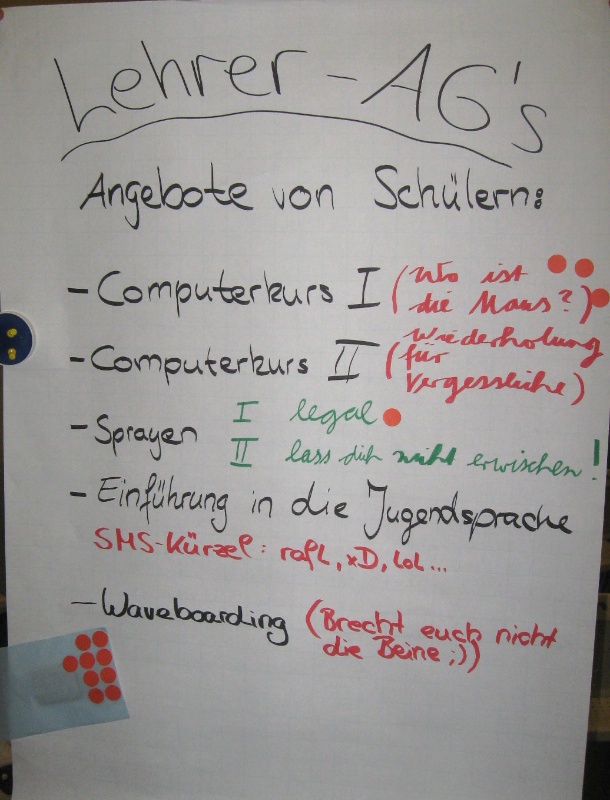 Lehrer-AG's
Angebote von Schülern:
- Computerkurs I (Wo ist
die Maus?)
- Computerkurs II (Wiederholung
für
Vergessliche)
- Sprayen I legal
II lass dich nicht erwischen!
- Einführung in die Jugendsprache
SMS-Kürzel: rofl, xD, LoL...
- Waveboarding (Brecht euch nicht
die Beine ;))